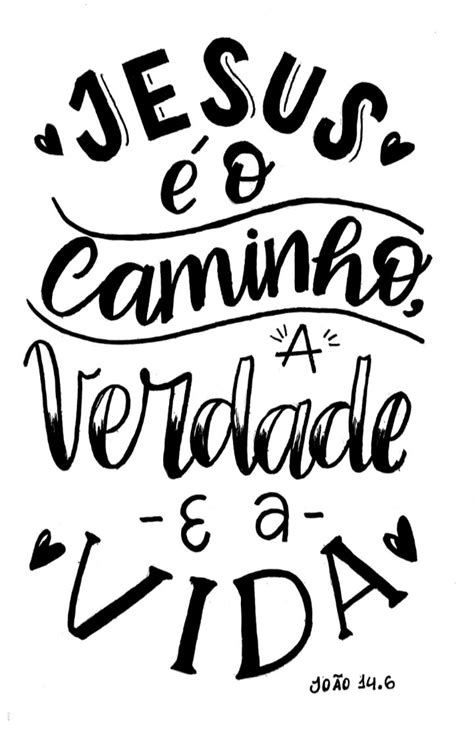 JESUS
é o
Caminho,
A
Verdade
- E a -
VIDA
JOÃO 14.6